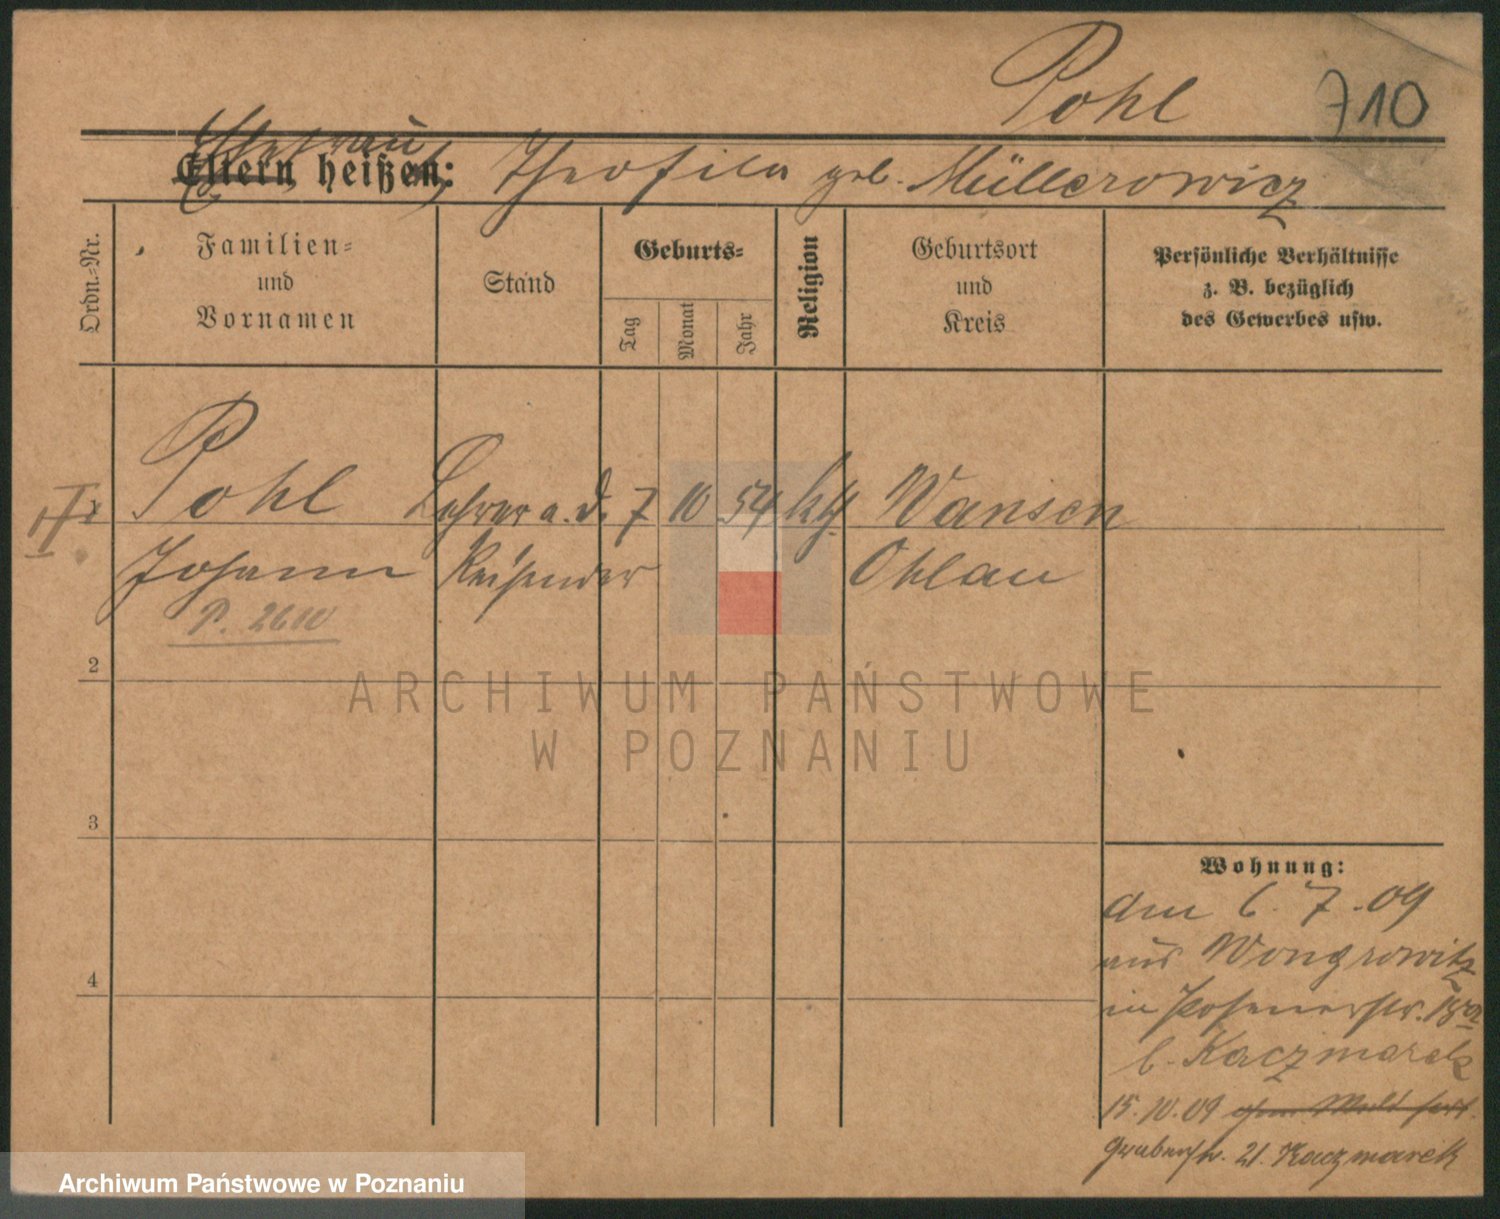 Pohl
710
Ehefrau
Eltern heißen: Theofila geb. Müllerowicz
Ordn.=Nr.
Familien=
und
Vornamen
Stand
Geburts=
Tag
Monat
Jahr
Religion
Geburtsort
und
Kreis
Persönliche Verhältnisse
z. B. bezüglich
des Gewerbes usw.
II
1
Pohl Lehrer a. d. 7 10 54 kth Wansen
Johann Reisender Ohlau
P. 2610
2
3
4
Wohnung:
den 6. 7. 09
aus Wongrowitz
in Posenerstr.
b. Kaczmarek
15. 10. 09
Grabenstr. 21. Kaczmarek
ARCHIWUM PAŃSTWOWE
W POZNANIU
Archiwum Państwowe w Poznaniu